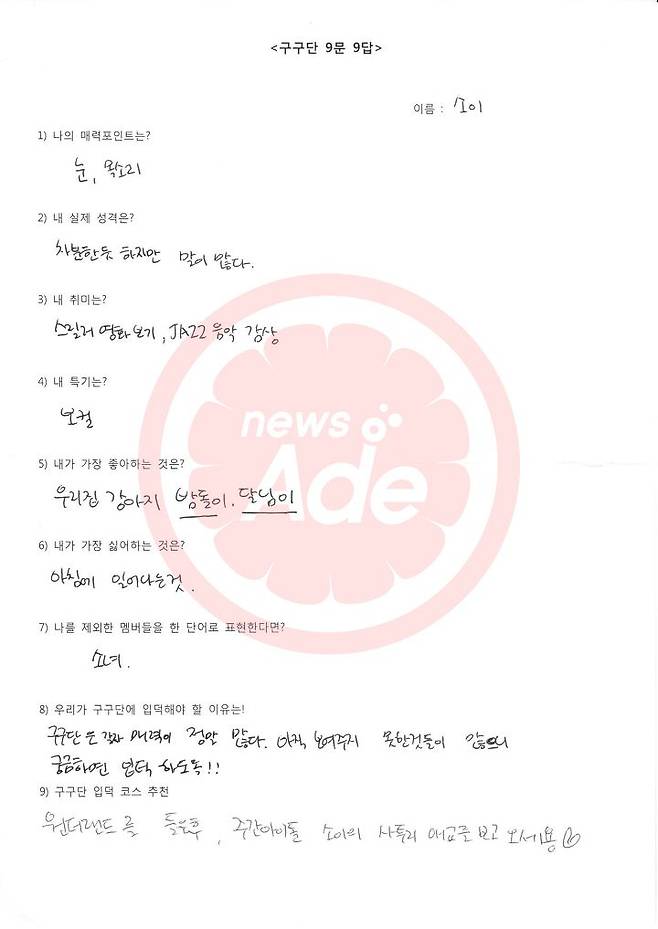 <구구단 9문 9답>
이름 : 소이
1) 나의 매력포인트는?
눈, 목소리
2) 내 실제 성격은?
차분한듯 하지만 말이 많다.
3) 내 취미는?
스릴러 영화보기, JAZZ 음악 감상
4) 내 특기는?
보컬
news
Ade
5) 내가 가장 좋아하는 것은?
우리집 강아지 밤돌이. 달님이
6) 내가 가장 싫어하는 것은?
아침에 일어나는것.
7) 나를 제외한 멤버들을 한 단어로 표현한다면?
소녀.
8) 우리가 구구단에 입덕해야 할 이유는!
구구단은 각자 매력이 정말 많다. 아직 보여주지 못한것들이 많으니
궁금하면 입덕 하도록!!
9) 구구단 입덕 코스 추천
원더랜드를 들은후, 주간아이돌 소이의 사투리 애교를 보고 오세용